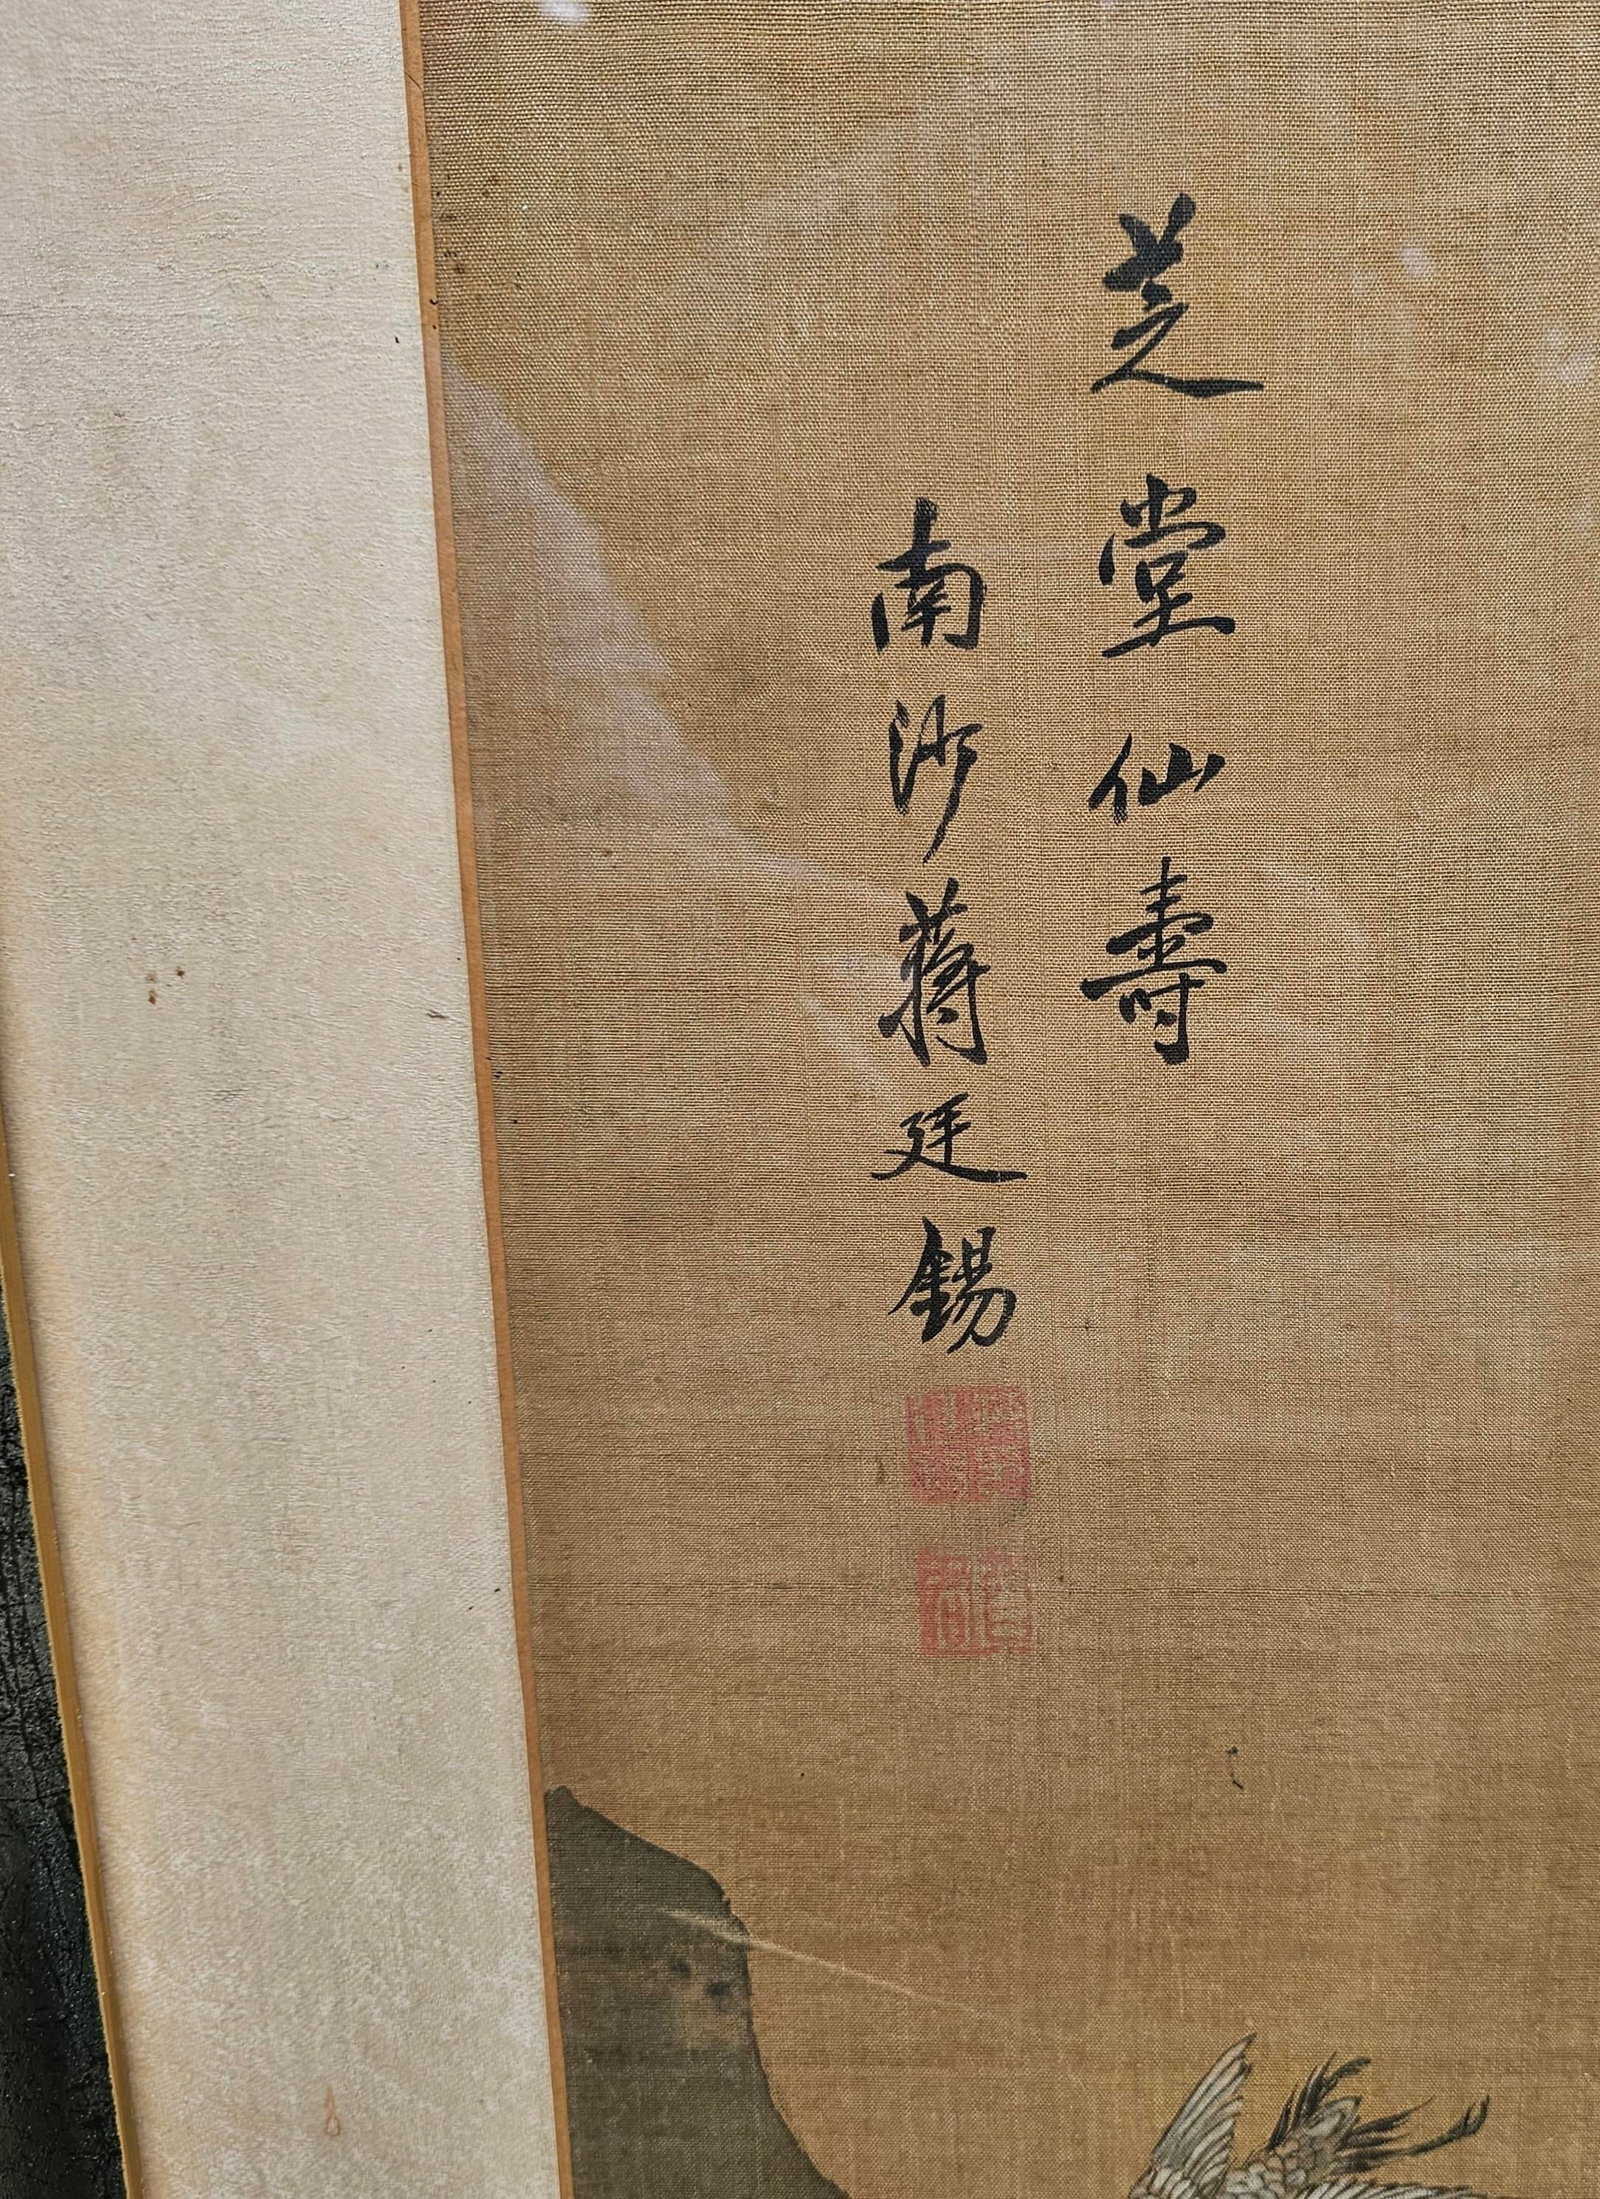 芝堂仙壽
南沙蒋廷錫